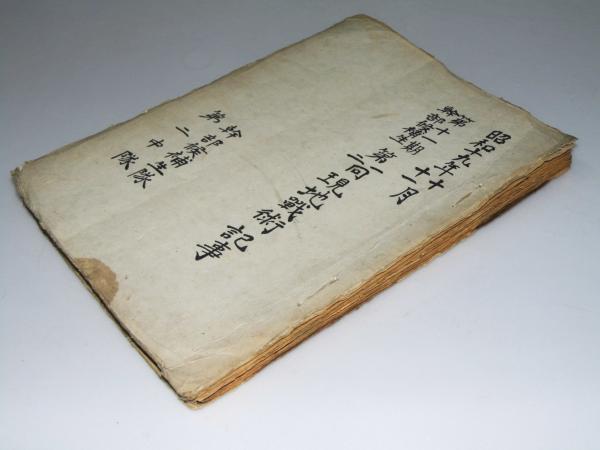 昭和十九年十十一月
第十一期
幹部候補生
第一二回現地戰術記事
幹部候補生隊
第二中隊